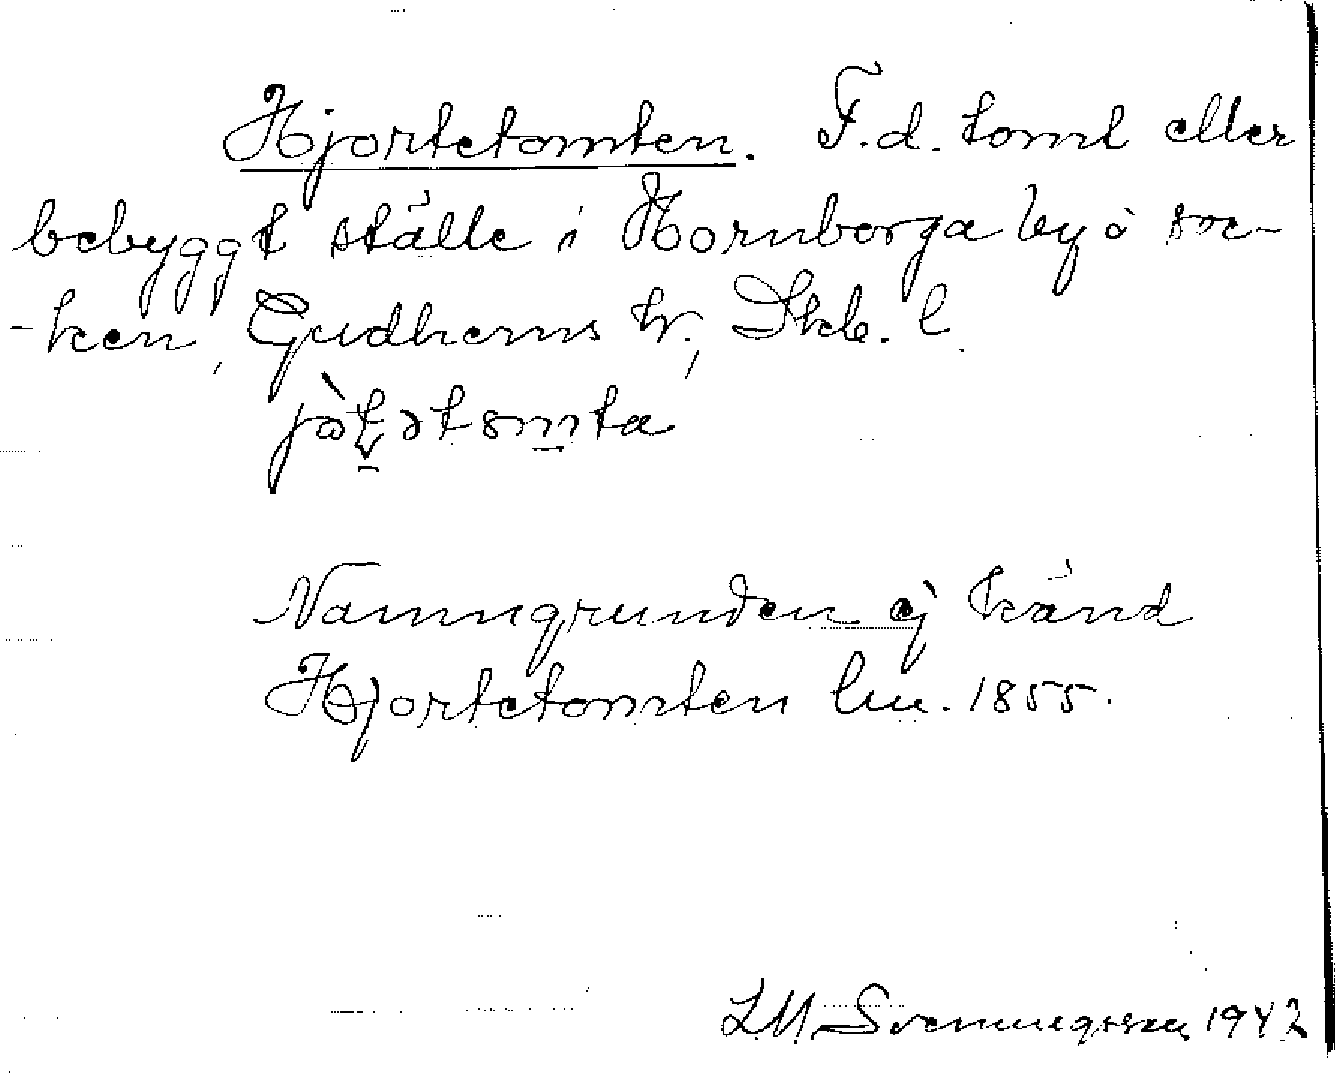 Hjortetomten. F.d. tomt eller
bebyggt ställe i Hornborga by o soc-
-ken, Gudhems hr, Skb. l.
Namngrunden ej känd
Hjortetomten lm. 1855.
LM Svenungsson 1942